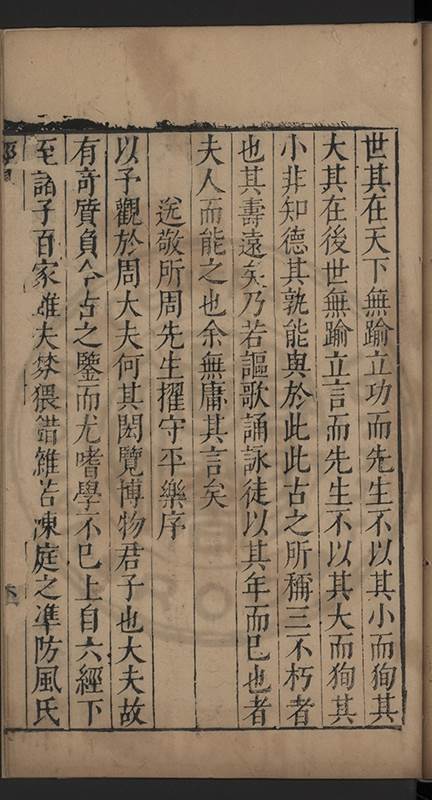 世其在天下無踰立功而先生不以其小而徇其
大其在後世無踰立言而先生不以其大而狥其
小非知德其孰能與於此此古之所稱三不朽者
也其壽遠矣乃若謳歌誦詠徒以其年而已也者
夫人而能之也余無庸其言矣
送敬所周先生擢守平樂序
以予觀於周大夫何其閎覽博物君子也大夫故
有奇質負今古之鑒而尤嗜學不已上自六經下
至諸子百家雖夫棼猥錯雜若凍庭之凖防風氏